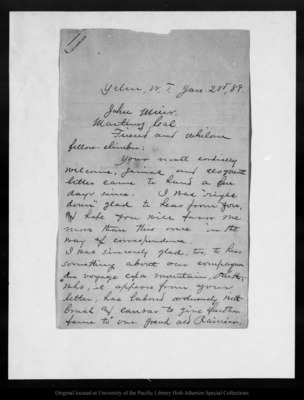 Yelm, W. T. Jan. 21st, 89.
John Muir.
Martinez Cal.
Friend and whilom
fellow-climber:
Your most cordially
welcome, genial and eloquent
letter came to hand a few
days since. I was "right
down" glad to hear from you,
& hope you will favor me
more than this once in the
way of correspondence.
I was sincerely glad, too, to hear
something about our compagnon
du voyage of a mountain,
who, it appears from your
letter, has labored arduously with
brush & canvas to give further
fame to our grand old Rainier.
Original located at University of the Pacific Library Holt-Atherton Special Collections